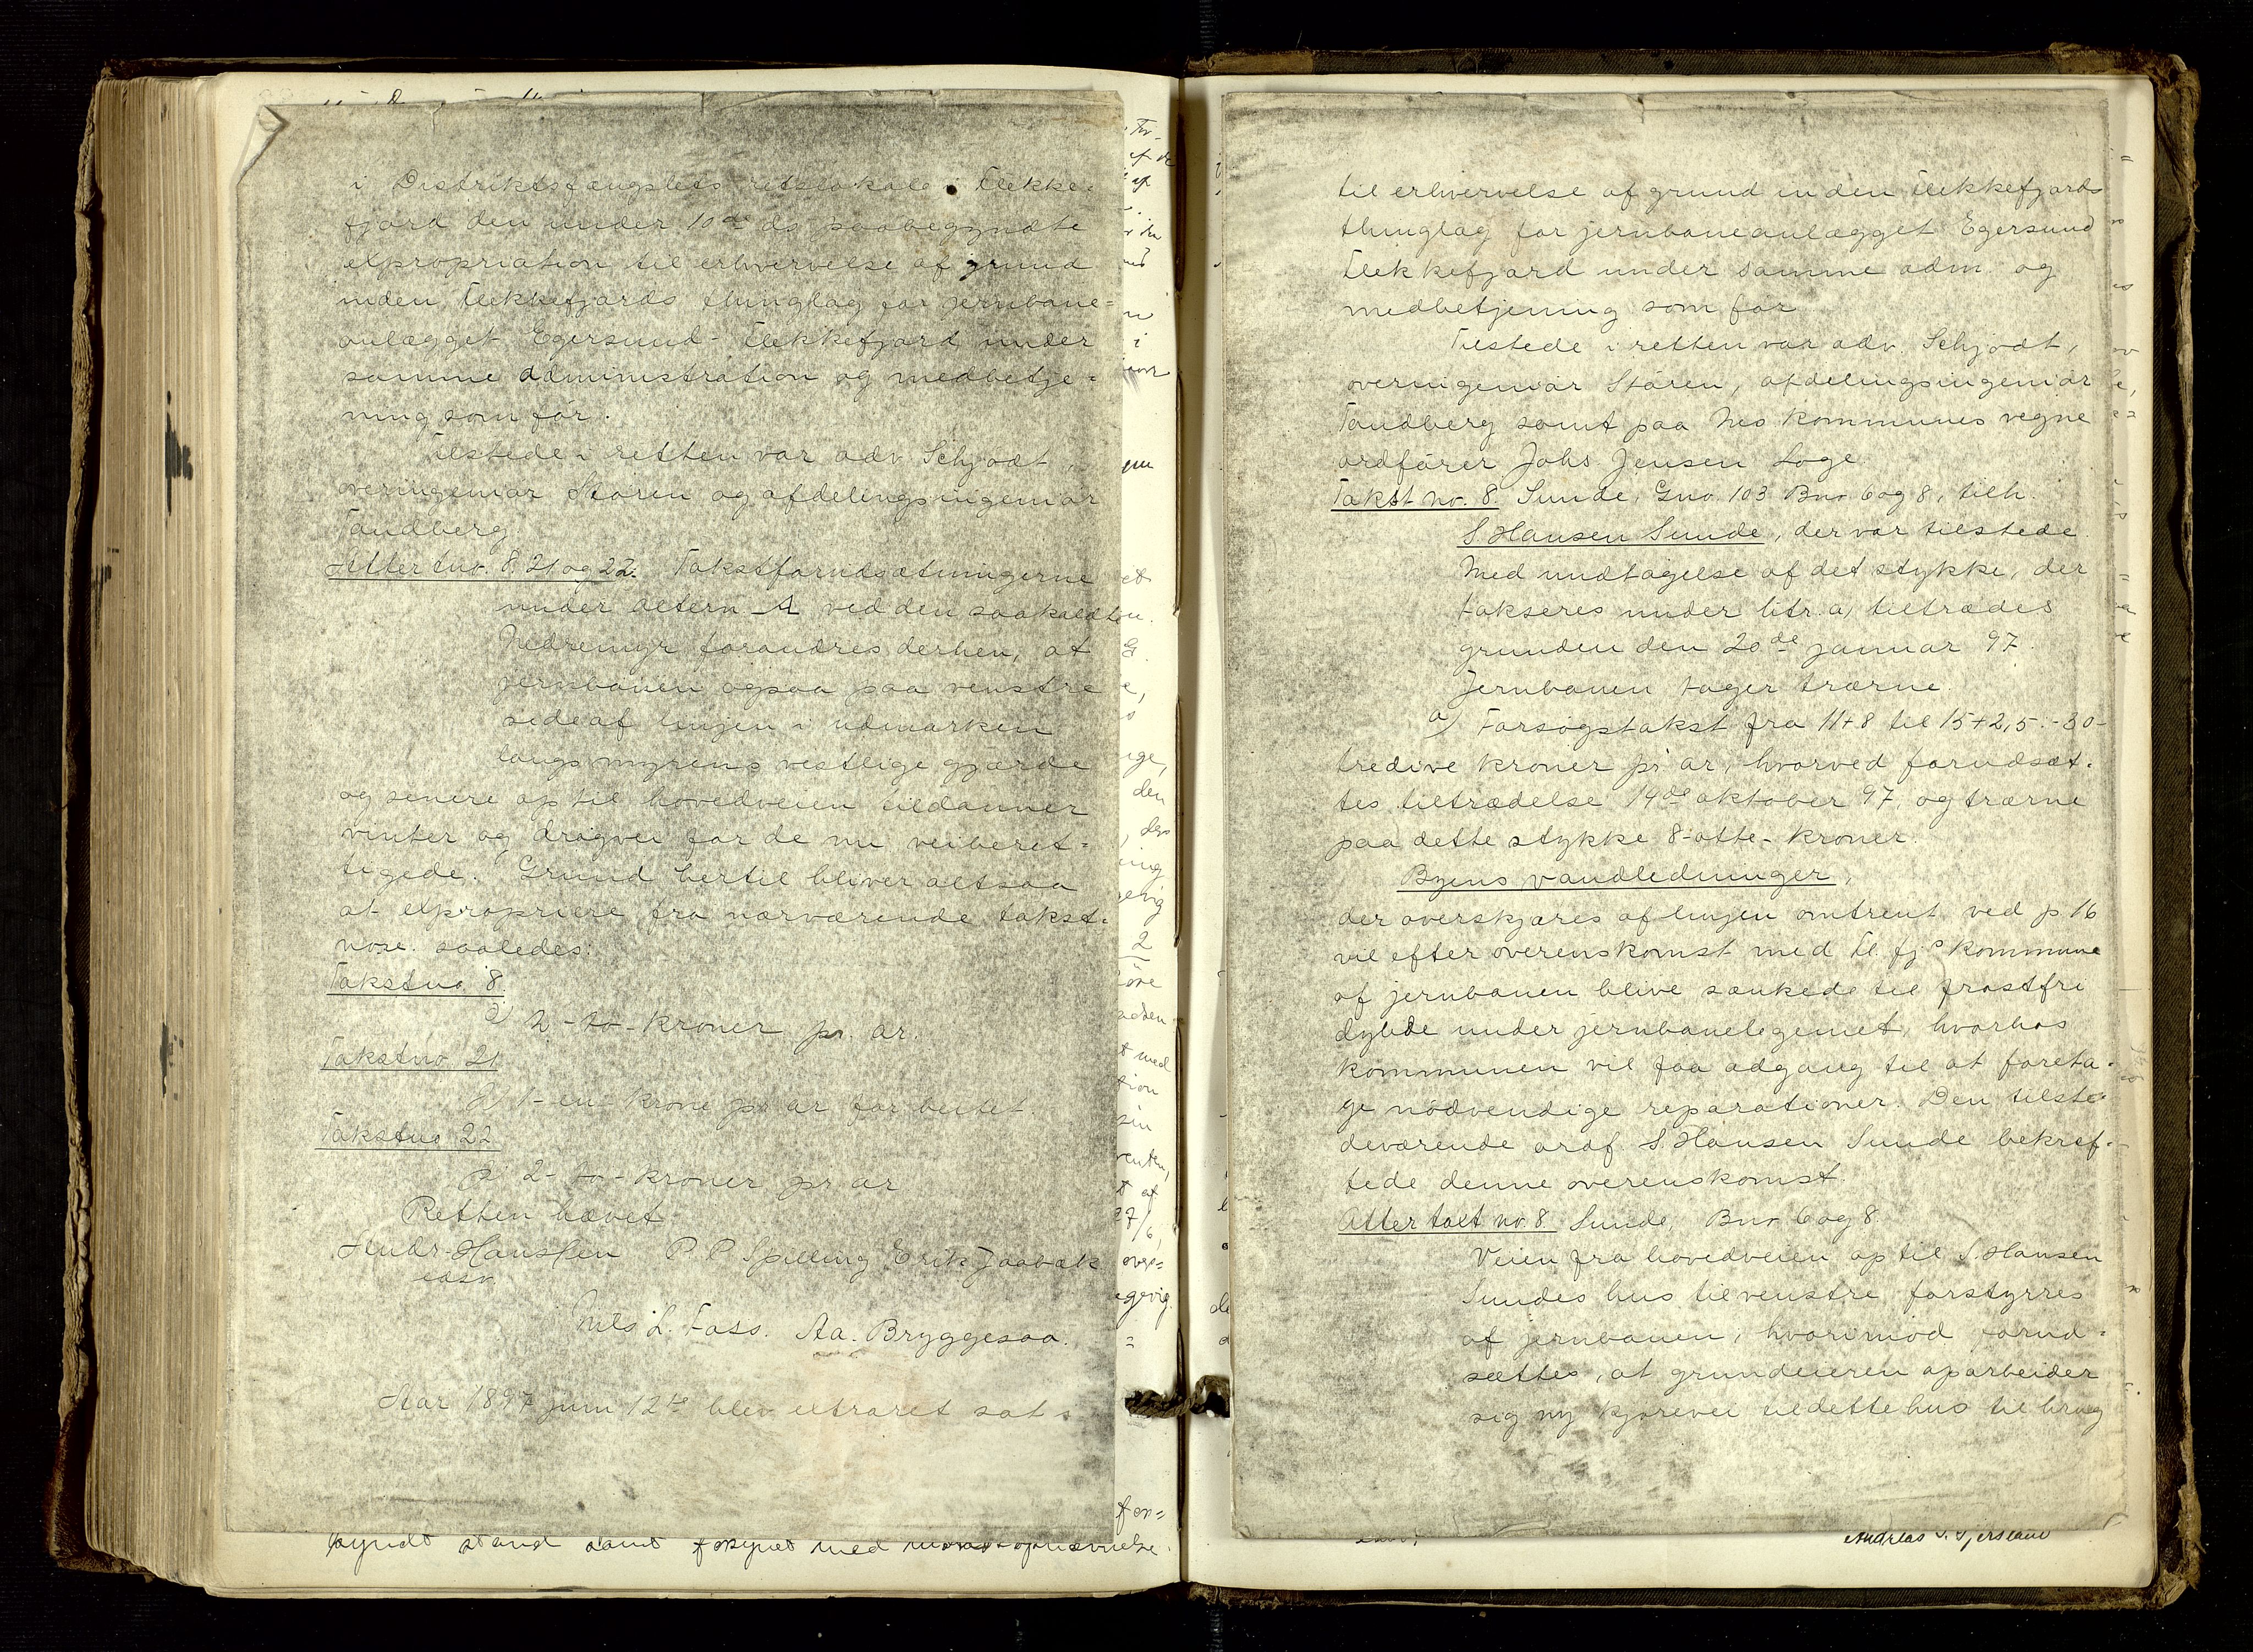 i Distriktsfængslets retslokale i Flekke-
fjord den under 10de ds paabegyndte
expropriation til erhvervelse af grund
inden Flekkefjords thinglag for jernbane=
anlægget Egersund-Flekkefjord under
samme administration og medbetje=
ning som før.
Tilstede i retten var adv. Schjødt,
overingeniør Støren og afdelingsingeniør
Tandberg
Atter tno. 8. 21 og 22. Takstforudsætningerne
under altern A ved den saakaldte
Nedremyr forandres derhen, at
jernbanen ogsaa paa venstre
side af linjen i udmarken
langs myrens vestlige gjærde
og senere op til hovedveien tildanner
vinter og dragvei for de nu veiberet=
tigede. Grund hertil bliver altsaa
at expropriere fra nærværende takst-
nose. saaledes:
Takstno. 8.
2 - to - kroner pr. ar.
Takstno 21
1 - en - krone pr ar for beitet.
Takstno 22
2 - to - kroner pr ar
Retten hævet
Andr. Hanssen P. P. Spilling Erik Jaabæk
edsv.
Nils L. Foss. Aa. Bryggesaa.
Aar 1897 juni 12te blev extraret sat
kyndt stand samt forsynet med
til erhvervelse af grund inden Flekkefjords
thinglag for jernbaneanlægget Egersund
Flekkefjord under samme adm. og
medbetjening som før
Tilstede i retten var adv. Schjødt,
overingeniør Støren, afdelingsingeniør
Tandberg samt paa Nes kommunes vegne
ordfører Johs. Jensen Loge.
Takst no. 8. Sunde, Gno 103 Bno 6 og 8, tilh.
S. Hansen Sunde, der var tilstede
Med undtagelse af det stykke, der
takseres under litr. a, tiltrædes
grunden den 20de januar 97.
Jernbanen tager trærne.
a) Forsøgstakst fra 11+8 til 15+2,5. -30-
tredive kroner pr ar, hvorved forudsæt-
tes tiltrædelse 14de oktober 97, og trærne
paa dette stykke 8-otte- kroner.
Byens vandledninger,
der overskjæres af linjen omtrent ved p 16
vil efter overenskomst med Fl. fj.s kommune
af jernbanen blive sænkede til frostfri
dybde under jernbanelegemet, hvorhos
kommunen vil faa adgang til at foreta-
ge nødvendige reparationer. Den tilste-
deværende ordf. S. Hansen Sunde bekræf-
tede denne overenskomst
Atter takst no. 8. Sunde, Bno 6 og 8.
Veien fra hovedveien op til S. Hansen
Sundes hus til venstre forstyrres
af jernbanen, hvorimod forud=
sættes, at grundeieren oparbeider
sig ny kjørevei til dette hus til brug
Andreas